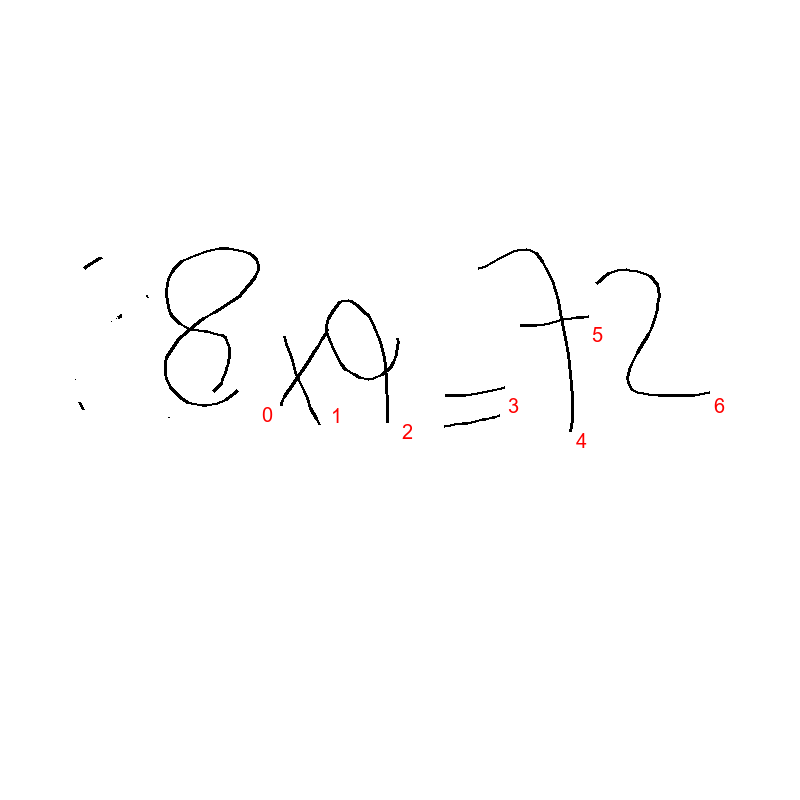 8x9=72
0 1 2 3 4 5 6